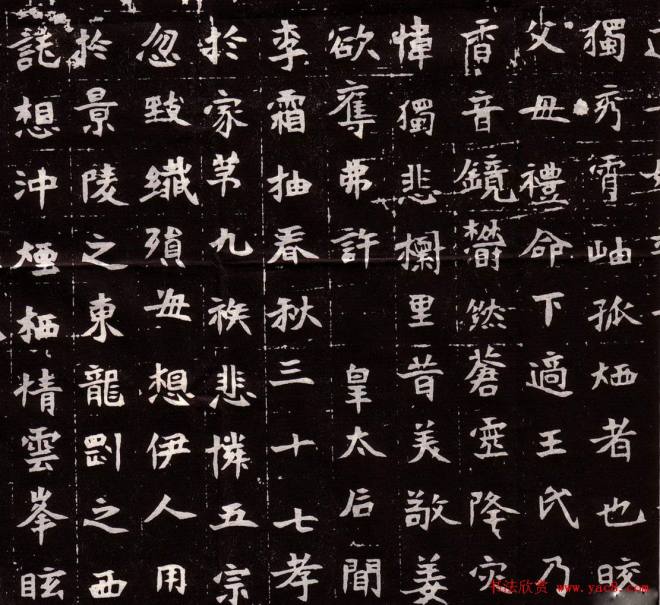 獨秀霄岫孤㶭者也晈
父母禮命下適王氏乃
音鏡欝然蒼靈降灾
惟獨悲櫚里昔美敬姜
欲奪弗許 皇太后聞
李霜抽春秋三十七孝
於家苐九族悲憐五宗
忽㱙纎殞毎想伊人用
於景陵之東龍罡之西
託想沖煙栖情雲峯眩
书法欣赏 www.yac8.com